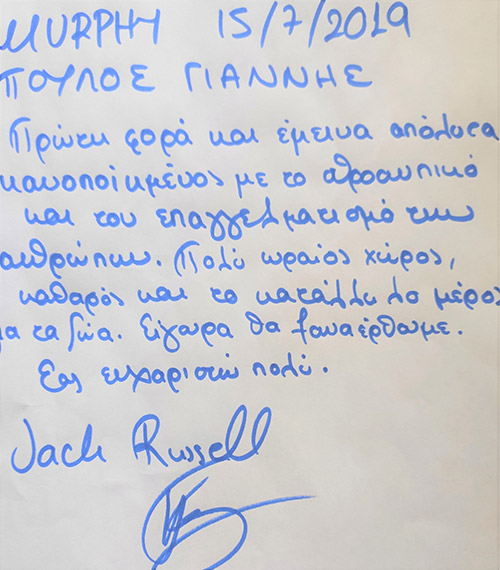 MURPHY 15/7/2019
ΠΟΥΛΟΣ ΓΙΑΝΝΗΣ
Πρώτη φορά και έμεινα απόλυτα
ικανοποιημένος με το προσωπικό
και τον επαγγελματισμό των
ανθρώπων. Πολύ ωραίος χώρος,
καθαρός και το κατάλληλο μέρος
για τα ζώα. Σίγουρα θα ξαναέρθουμε.
Σας ευχαριστώ πολύ.
Jack Russell